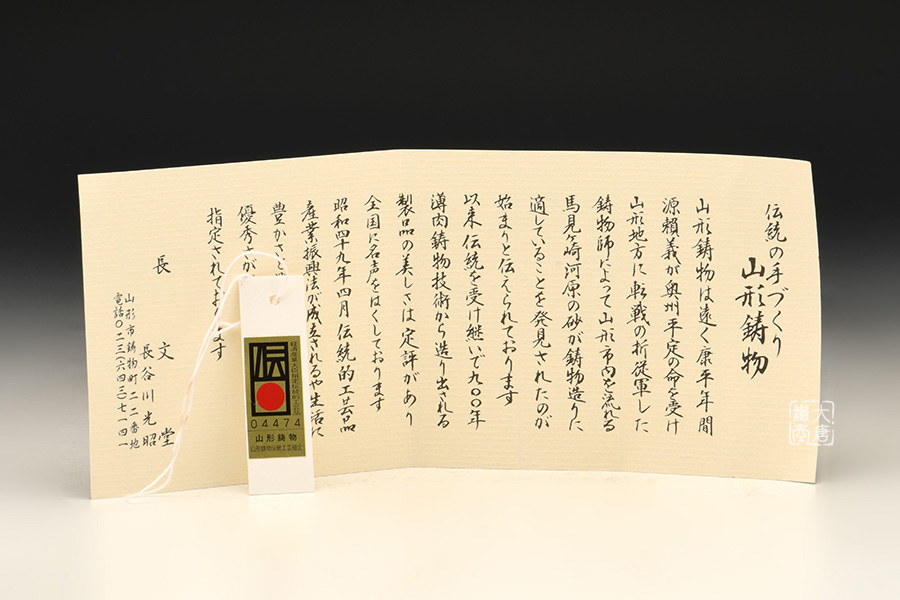 伝統の手づくり
山形鋳物
山形鋳物は遠く康平年間
源頼義が奥州平定の命を受け
山形地方に転戦の折従軍した
鋳物師によって山形市内を流れる
馬見ヶ崎河原の砂が鋳物造りに
適していることを発見されたのが
始まりと伝えられております
以来伝統を受け継いで九〇〇年
薄肉鋳物技術から造り出される
製品の美しさは定評があり
全国に名声をはくしております
昭和四十九年四月伝統的工芸品
産業振興法が成立されるや生活に
豊かさと
優秀さが
指定されてお ます
長文堂
長谷川光昭
山形市鋳物町二二番地
電話〇二三(六四三)七一四一
経済産業大臣指定伝統的工芸品
伝
04474
山形鋳物
山形鋳物伝統工芸組合
大唐
鐵商